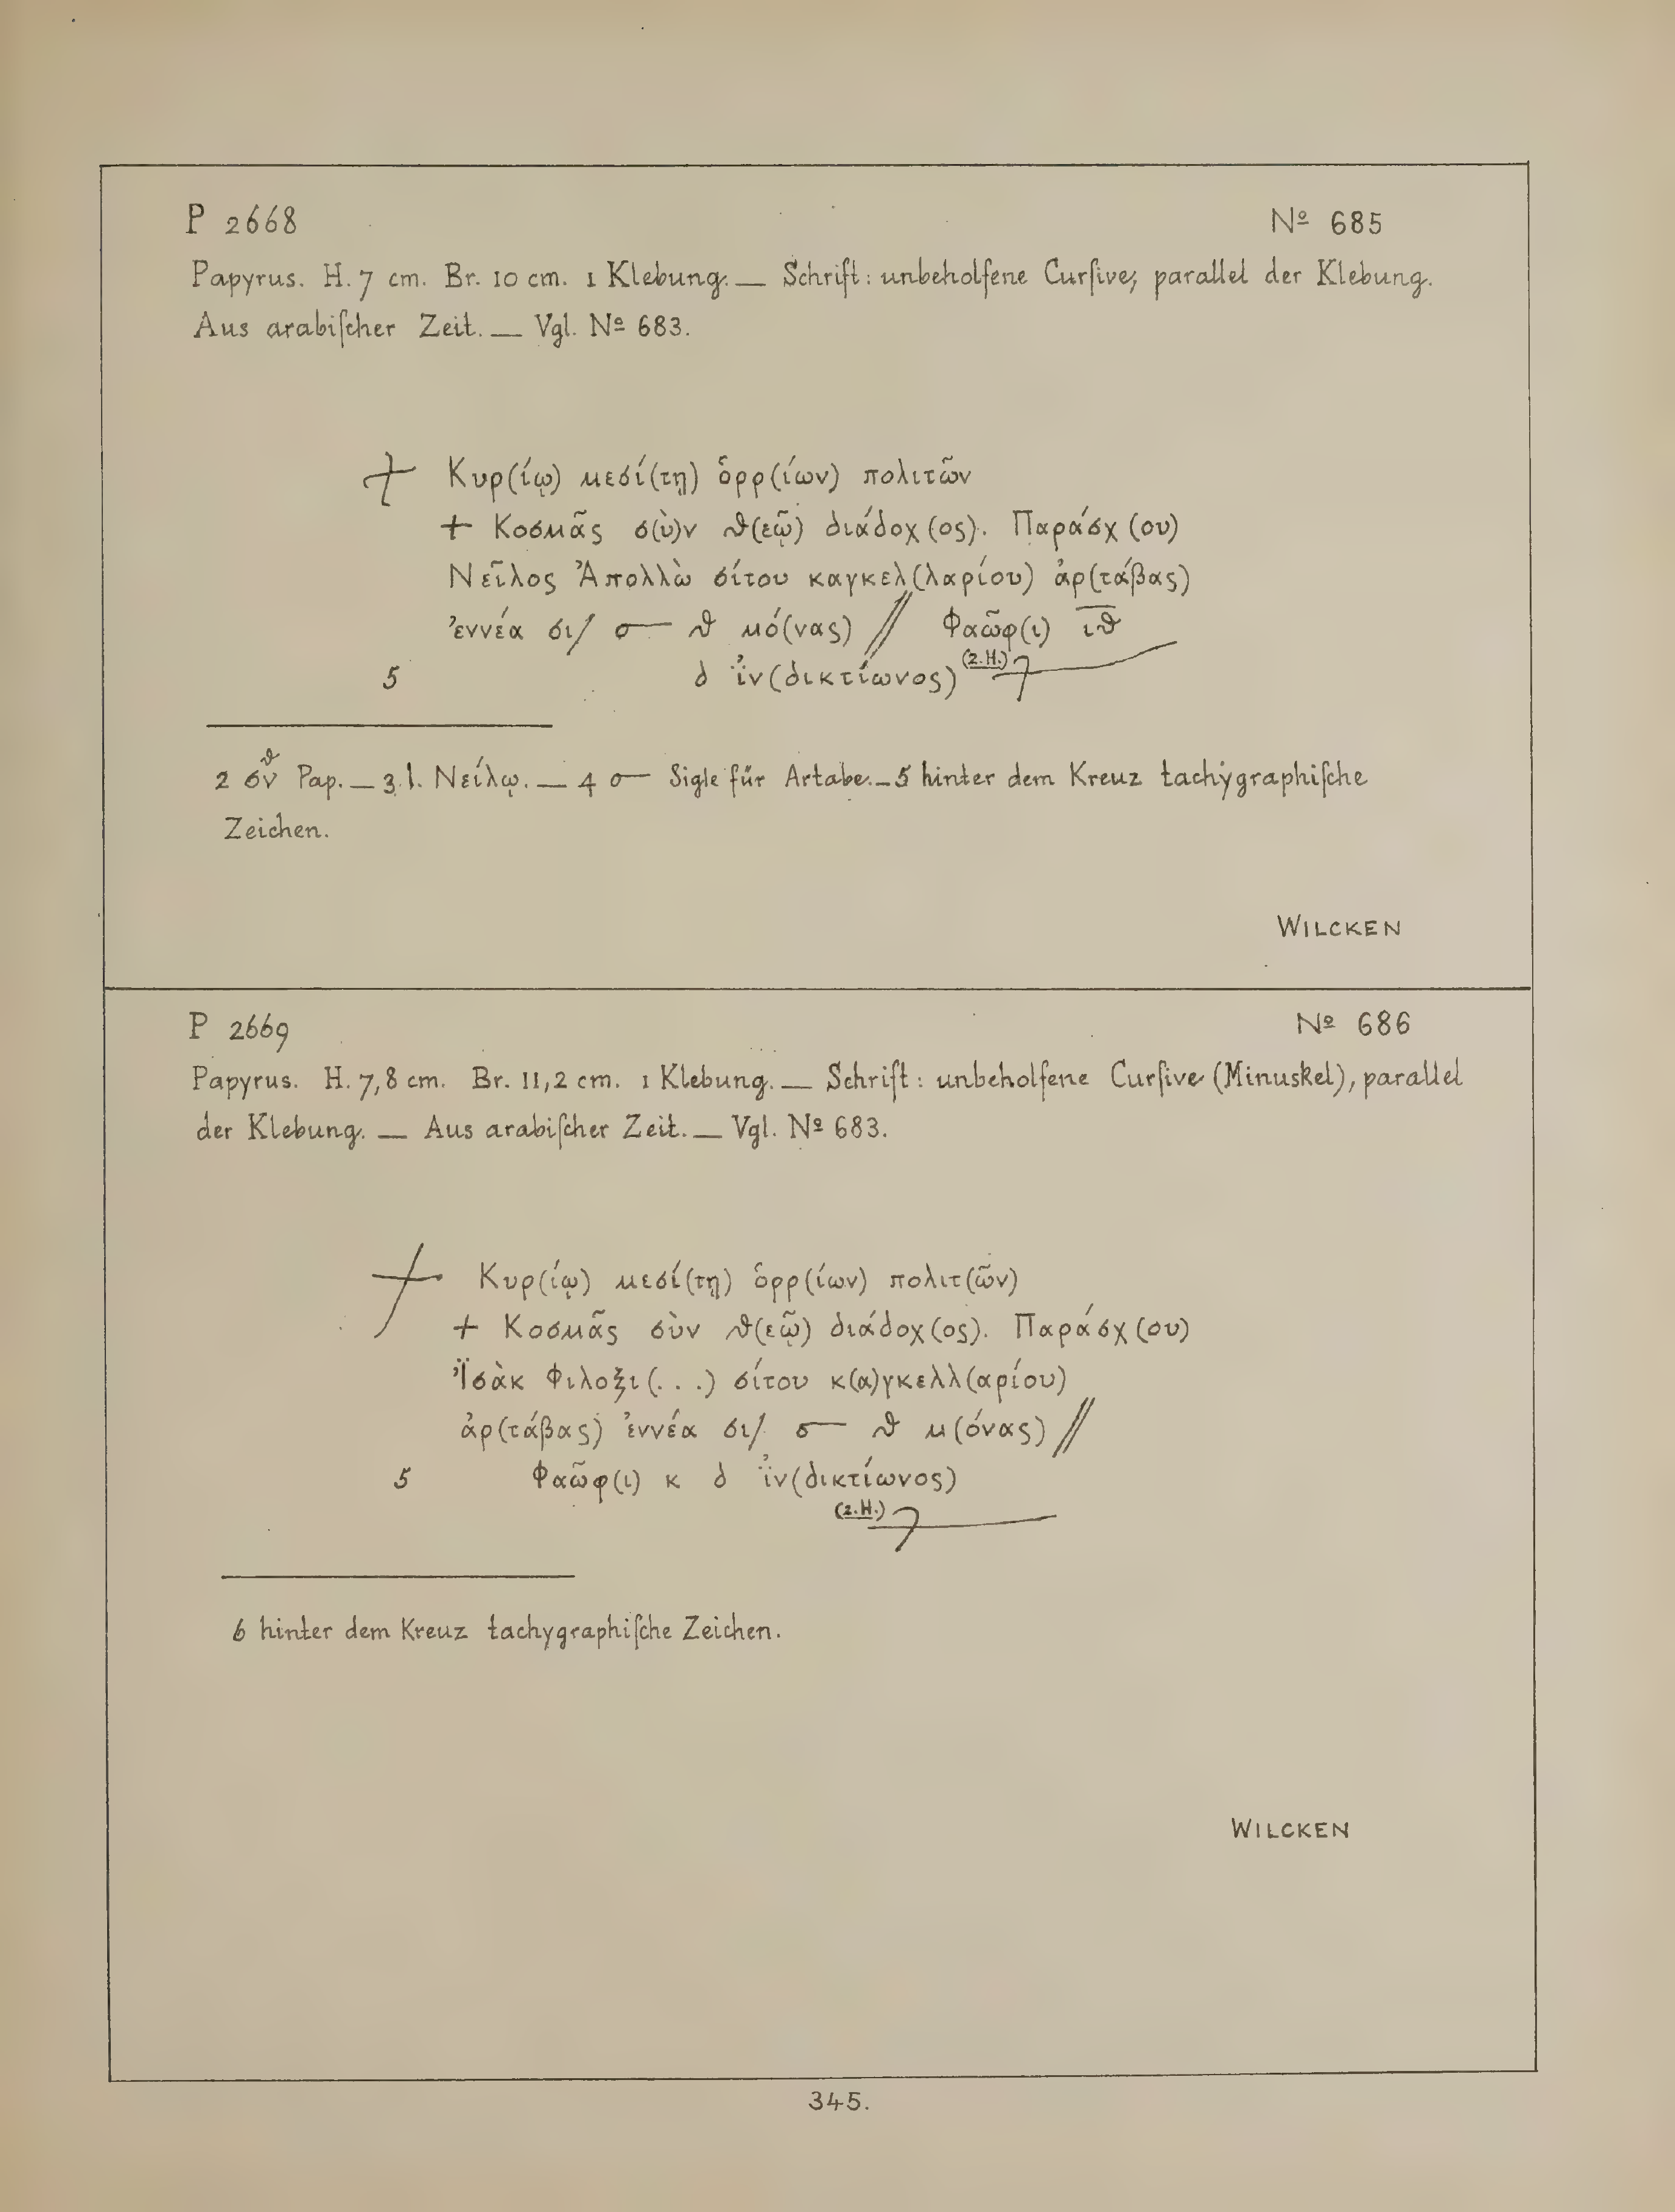 P 2668
Nº 685
Papyrus. H. 7 cm. Br. 10 cm. 1 Klebung. — Schrift: unbeholfene Curſive, parallel der Klebung.
Aus arabiſcher Zeit. — Vgl. Nº 683.
⳨ Κυρ(ίῳ) μεσί(τῃ) ὁρρ(ίων) πολιτῶν
+ Κοσμᾶς σ(ὺ)ν θ(εῷ) διάδοχ(ος). Παράσχ(ου)
Νεῖλος Ἀπολλὼ σίτου καγκελ(λαρίου) ἀρ(τάβας)
ἐννέα σι/ σ— θ μό(νας) // Φαῶφ(ι) ι̅θ̅
5 δ ἰ̈ν(δικτίωνος) (2.H.) +
2 σν^θ Pap. — 3 l. Νείλῳ. — 4 σ— Sigle für Artabe. — 5 hinter dem Kreuz tachygraphiſche
Zeichen.
WILCKEN
P 2669
Nº 686
Papyrus. H. 7,8 cm. Br. 11,2 cm. 1 Klebung. — Schrift: unbeholfene Curſive (Minuskel), parallel
der Klebung. — Aus arabiſcher Zeit. — Vgl. Nº 683.
+ Κυρ(ίῳ) μεσί(τῃ) ὁρρ(ίων) πολιτ(ῶν)
+ Κοσμᾶς σὺν θ(εῷ) διάδοχ(ος). Παράσχ(ου)
Ἰ̈σὰκ Φιλοξι(. . .) σίτου κ(α)γκελλ(αρίου)
ἀρ(τάβας) ἐννέα σι/ σ— θ μ(όνας) //
5 Φαῶφ(ι) κ δ ἰ̈ν(δικτίωνος)
(2.H.) +
6 hinter dem Kreuz tachygraphiſche Zeichen.
WILCKEN
345.